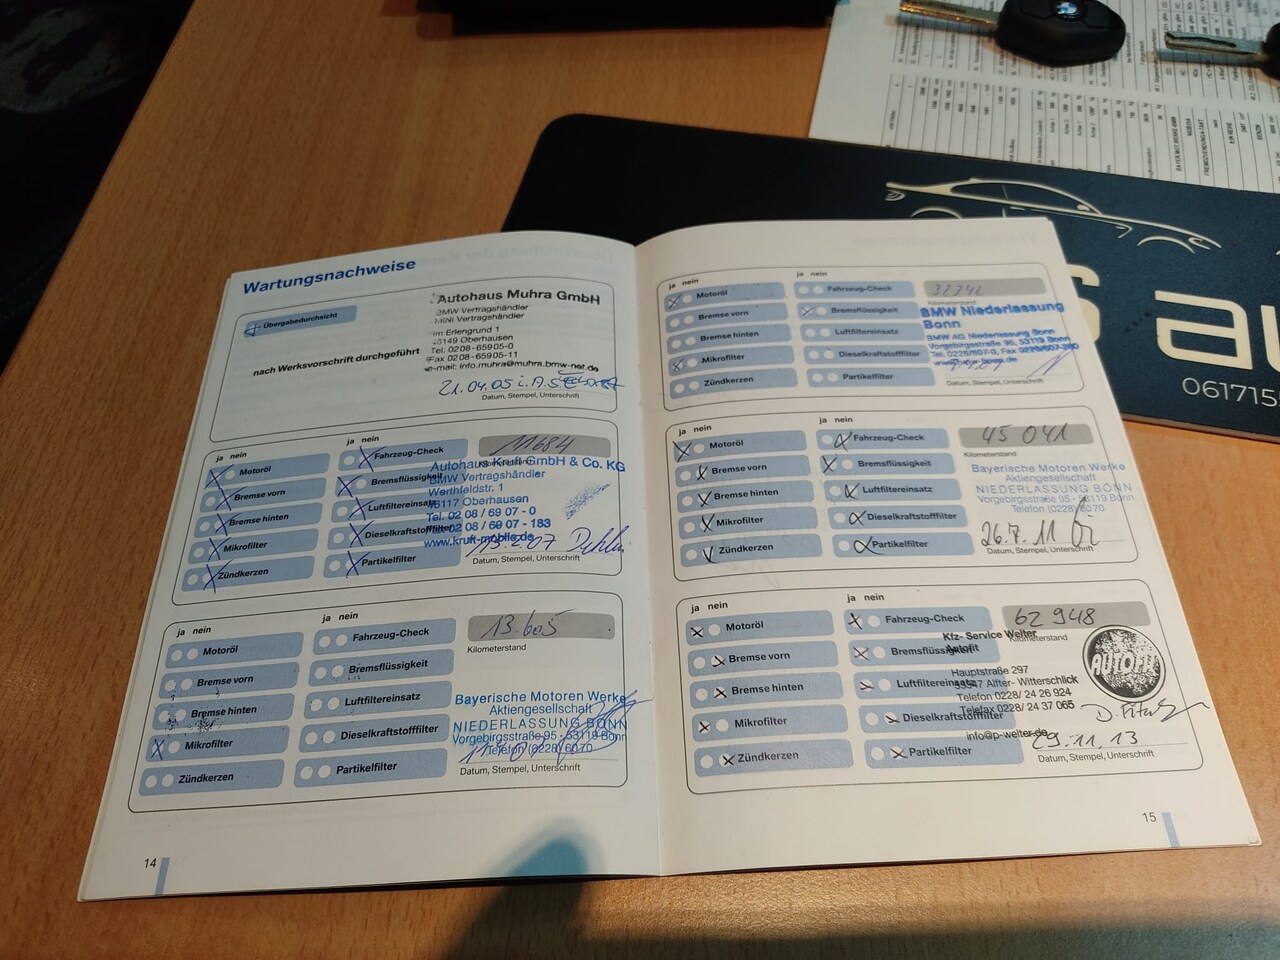 Wartungsnachweise
Übergabedurchsicht
nach Werksvorschrift durchgeführt
Autohaus Muhra GmbH
BMW Vertragshändler
MINI Vertragshändler
Erlengrund 1
46149 Oberhausen
Tel: 0208-65905-0
Fax 0208-65905-11
e-mail: info.muhra@muhra.bmw-net.de
21.04.05 i.A.
Datum, Stempel, Unterschrift
ja nein
ja nein
Motoröl
Bremse vorn
Bremse hinten
Mikrofilter
Zündkerzen
Fahrzeug-Check
Bremsflüssigkeit
Luftfiltereinsatz
Dieselkraftstofffilter
Partikelfilter
11684
Autohaus Kruft GmbH & Co. KG
BMW Vertragshändler
Werthfeldstr. 1
46117 Oberhausen
Tel. 02 08 / 69 07 - 0
Fax 02 08 / 69 07 - 183
www.kruft-mobile.de
Datum, Stempel, Unterschrift
ja nein
ja nein
Motoröl
Bremse vorn
Bremse hinten
Mikrofilter
Zündkerzen
Fahrzeug-Check
Bremsflüssigkeit
Luftfiltereinsatz
Dieselkraftstofffilter
Partikelfilter
13.605
Kilometerstand
Bayerische Motoren Werke
Aktiengesellschaft
NIEDERLASSUNG BONN
Vorgebirgsstraße 95 - 53119 Bonn
Telefon (0228) 6070
Datum, Stempel, Unterschrift
14
ja nein
ja nein
Motoröl
Bremse vorn
Bremse hinten
Mikrofilter
Zündkerzen
Fahrzeug-Check
Bremsflüssigkeit
Luftfiltereinsatz
Dieselkraftstofffilter
Partikelfilter
Kilometerstand
BMW Niederlassung
Bonn
BMW AG Niederlassung Bonn
Vorgebirgsstraße 95, 53119 Bonn
Tel. 0228/607-0, Fax 0228/607-
Datum, Stempel, Unterschrift
ja nein
ja nein
Motoröl
Bremse vorn
Bremse hinten
Mikrofilter
Zündkerzen
Fahrzeug-Check
Bremsflüssigkeit
Luftfiltereinsatz
Dieselkraftstofffilter
Partikelfilter
45 041
Kilometerstand
Bayerische Motoren Werke
Aktiengesellschaft
NIEDERLASSUNG BONN
Vorgebirgsstraße 95 - 53119 Bonn
Telefon (0228) 6070
26.7.11
Datum, Stempel, Unterschrift
ja nein
ja nein
Motoröl
Bremse vorn
Bremse hinten
Mikrofilter
Zündkerzen
Fahrzeug-Check
Bremsflüssigkeit
Luftfiltereinsatz
Dieselkraftstofffilter
Partikelfilter
62 948
Kilometerstand
Kfz- Service Welter
Autofit
Hauptstraße 297
53347 Alfter- Witterschlick
Telefon 0228/ 24 26 924
Telefax 0228/ 24 37 065
info@p-welter.de
AUTOFIT
29.11.13
Datum, Stempel, Unterschrift
15